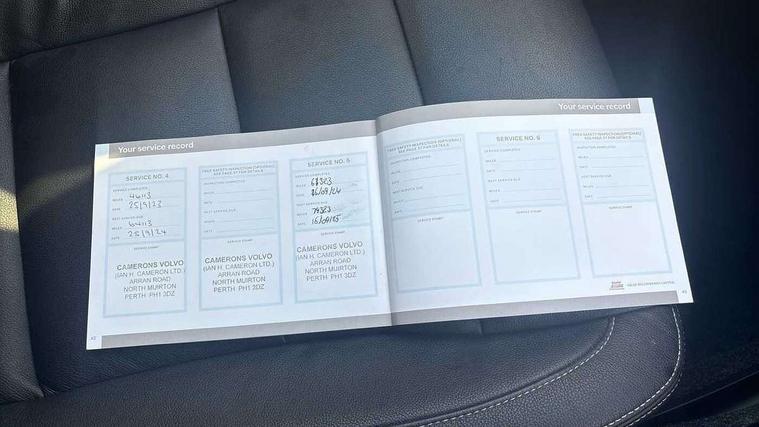 Your service record
SERVICE NO. 4
SERVICE COMPLETED
MILES 46113
DATE 25/9/23
NEXT SERVICE DUE
MILES 64113
DATE 25/9/24
SERVICE STAMP
CAMERONS VOLVO
(IAN H. CAMERON LTD.)
ARRAN ROAD
NORTH MUIRTON
PERTH PH1 3DZ
FREE SAFETY INSPECTION (OPTIONAL)
SEE PAGE 37 FOR DETAILS
INSPECTION COMPLETED
MILES
DATE
NEXT SERVICE DUE
MILES
DATE
SERVICE STAMP
CAMERONS VOLVO
(IAN H. CAMERON LTD.)
ARRAN ROAD
NORTH MUIRTON
PERTH PH1 3DZ
SERVICE NO. 5
SERVICE COMPLETED
MILES
DATE 16/09/24
NEXT SERVICE DUE
MILES
DATE 16/09/25
SERVICE STAMP
CAMERONS VOLVO
(IAN H. CAMERON LTD.)
ARRAN ROAD
NORTH MUIRTON
PERTH PH1 3DZ
42
Your service record
FREE SAFETY INSPECTION (OPTIONAL)
SEE PAGE 37 FOR DETAILS
INSPECTION COMPLETED
MILES
DATE
NEXT SERVICE DUE
MILES
DATE
SERVICE STAMP
SERVICE NO. 6
SERVICE COMPLETED
MILES
DATE
NEXT SERVICE DUE
MILES
DATE
SERVICE STAMP
FREE SAFETY INSPECTION (OPTIONAL)
SEE PAGE 37 FOR DETAILS
INSPECTION COMPLETED
MILES
DATE
NEXT SERVICE DUE
MILES
DATE
SERVICE STAMP
43